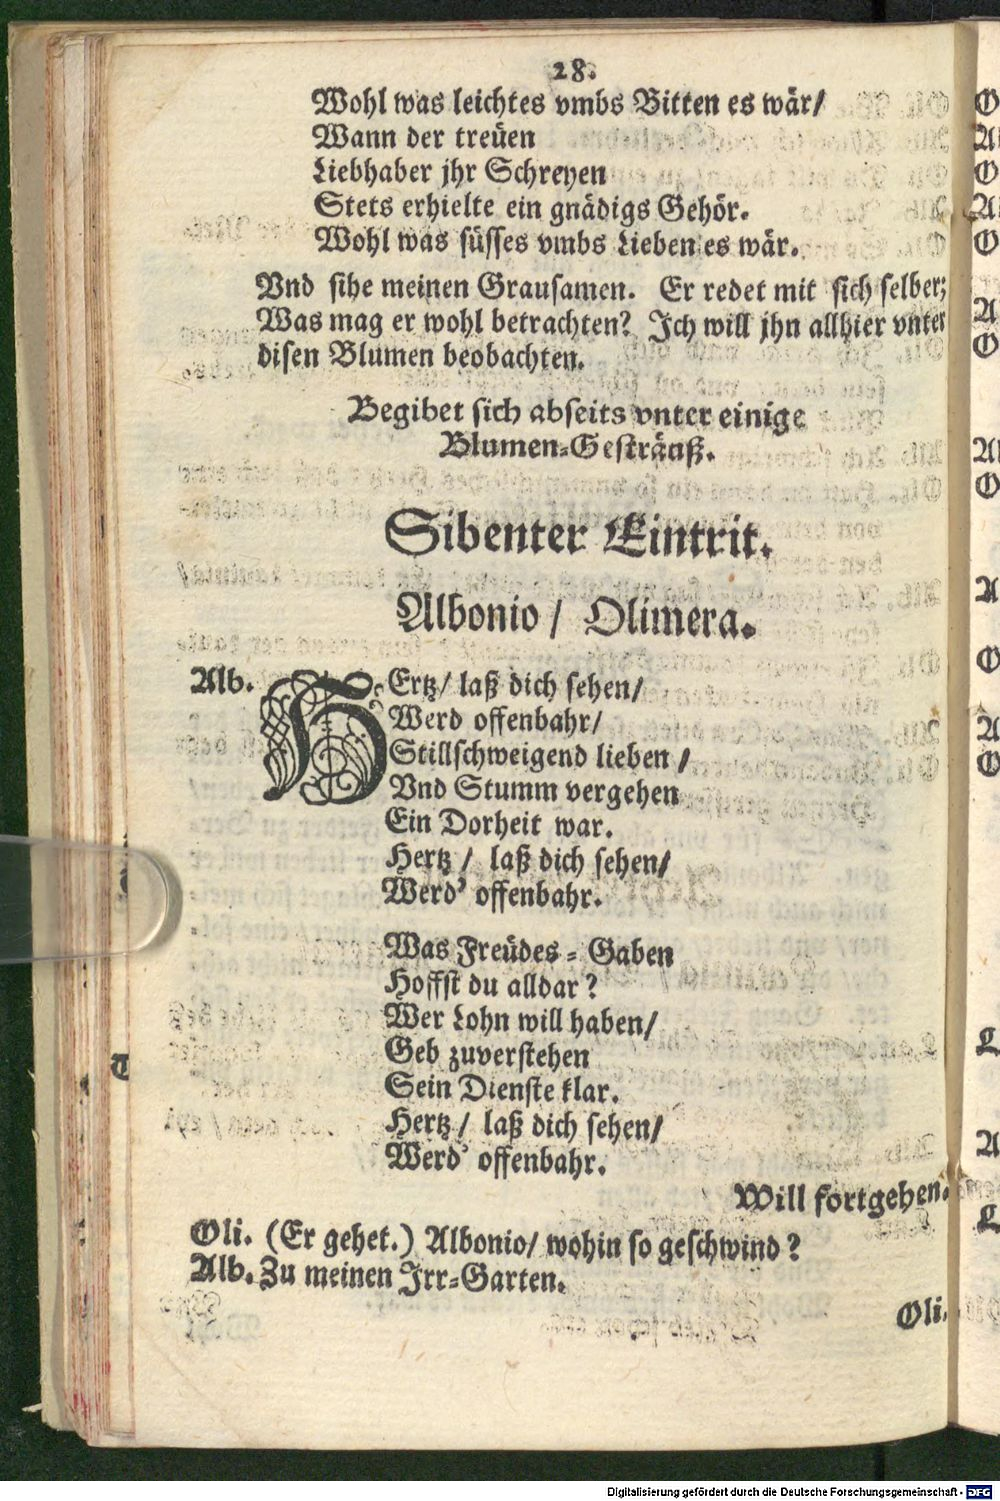 28.
Wohl was leichtes vmbs Bitten es wär/
Wann der treüen
Liebhaber jhr Schreyen
Stets erhielte ein gnädigs Gehör.
Wohl was süsses vmbs Lieben es wär.
Vnd sihe meinen Grausamen. Er redet mit sich selber;
Was mag er wohl betrachten? Ich will jhn allhier vnter
disen Blumen beobachten.
Begibet sich abseits vnter einige
Blumen-Gesträuß.
Sibenter Eintrit.
Albonio / Olimera.
Alb. HErtz/ laß dich sehen/
Werd offenbahr/
Stillschweigend lieben /
Vnd Stumm vergehen
Ein Dorheit war.
Hertz / laß dich sehen/
Werd' offenbahr.
Was Freüdes-Gaben
Hoffst du alldar?
Wer Lohn will haben/
Geb zuverstehen
Sein Dienste klar.
Hertz / laß dich sehen/
Werd' offenbahr.
Will fortgehen.
Oli. (Er gehet.) Albonio/ wohin so geschwind?
Alb. Zu meinen Irr-Garten.
Oli.
Digitalisierung gefördert durch die Deutsche Forschungsgemeinschaft - DFG